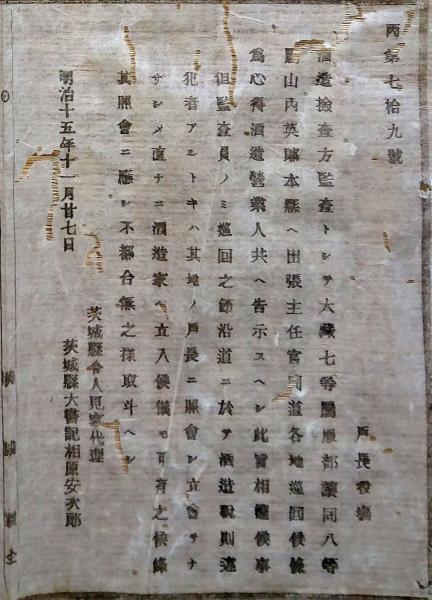 丙第七拾九號
戸長役塲
酒造檢査方監査トシテ大藏七等屬服部讓同八等
屬山内英郎本縣ヘ出張主任官同道各地巡回候條
爲心得酒造營業人共ヘ告示スヘシ此旨相達候事
但監査員ノミ巡回之節沿道ニ於テ酒造稅則違
犯者アルトキハ其地ノ戸長ニ照會シ立會ヲナ
サシメ直チニ酒造家ヘ立入候儀モ可有之候條
其照會ニ應シ不都合無之樣取斗ヘシ
明治十五年十一月廿七日
茨城縣令人見寧代理
茨城縣大書記相原安次郎
茨城縣